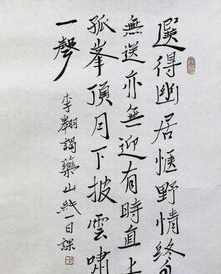 選得幽居愜野情終
無送亦無迎有時直上
孤峯頂月下披雲嘯
一聲
李翱謁藥山 日課